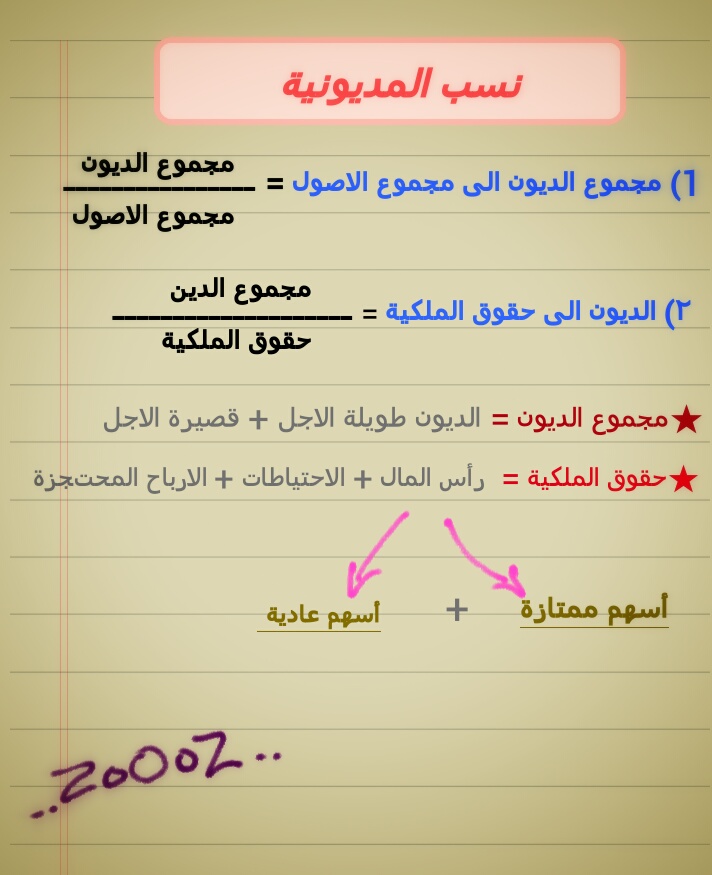 نسب المديونية
1) مجموع الديون الى مجموع الاصول = مجموع الديون
مجموع الاصول
٢) الديون الى حقوق الملكية = مجموع الدين
حقوق الملكية
★مجموع الديون = الديون طويلة الاجل + قصيرة الاجل
★حقوق الملكية = رأس المال + الاحتياطات + الارباح المحتجزة
أسهم ممتازة + أسهم عادية
..ZoOoZ..